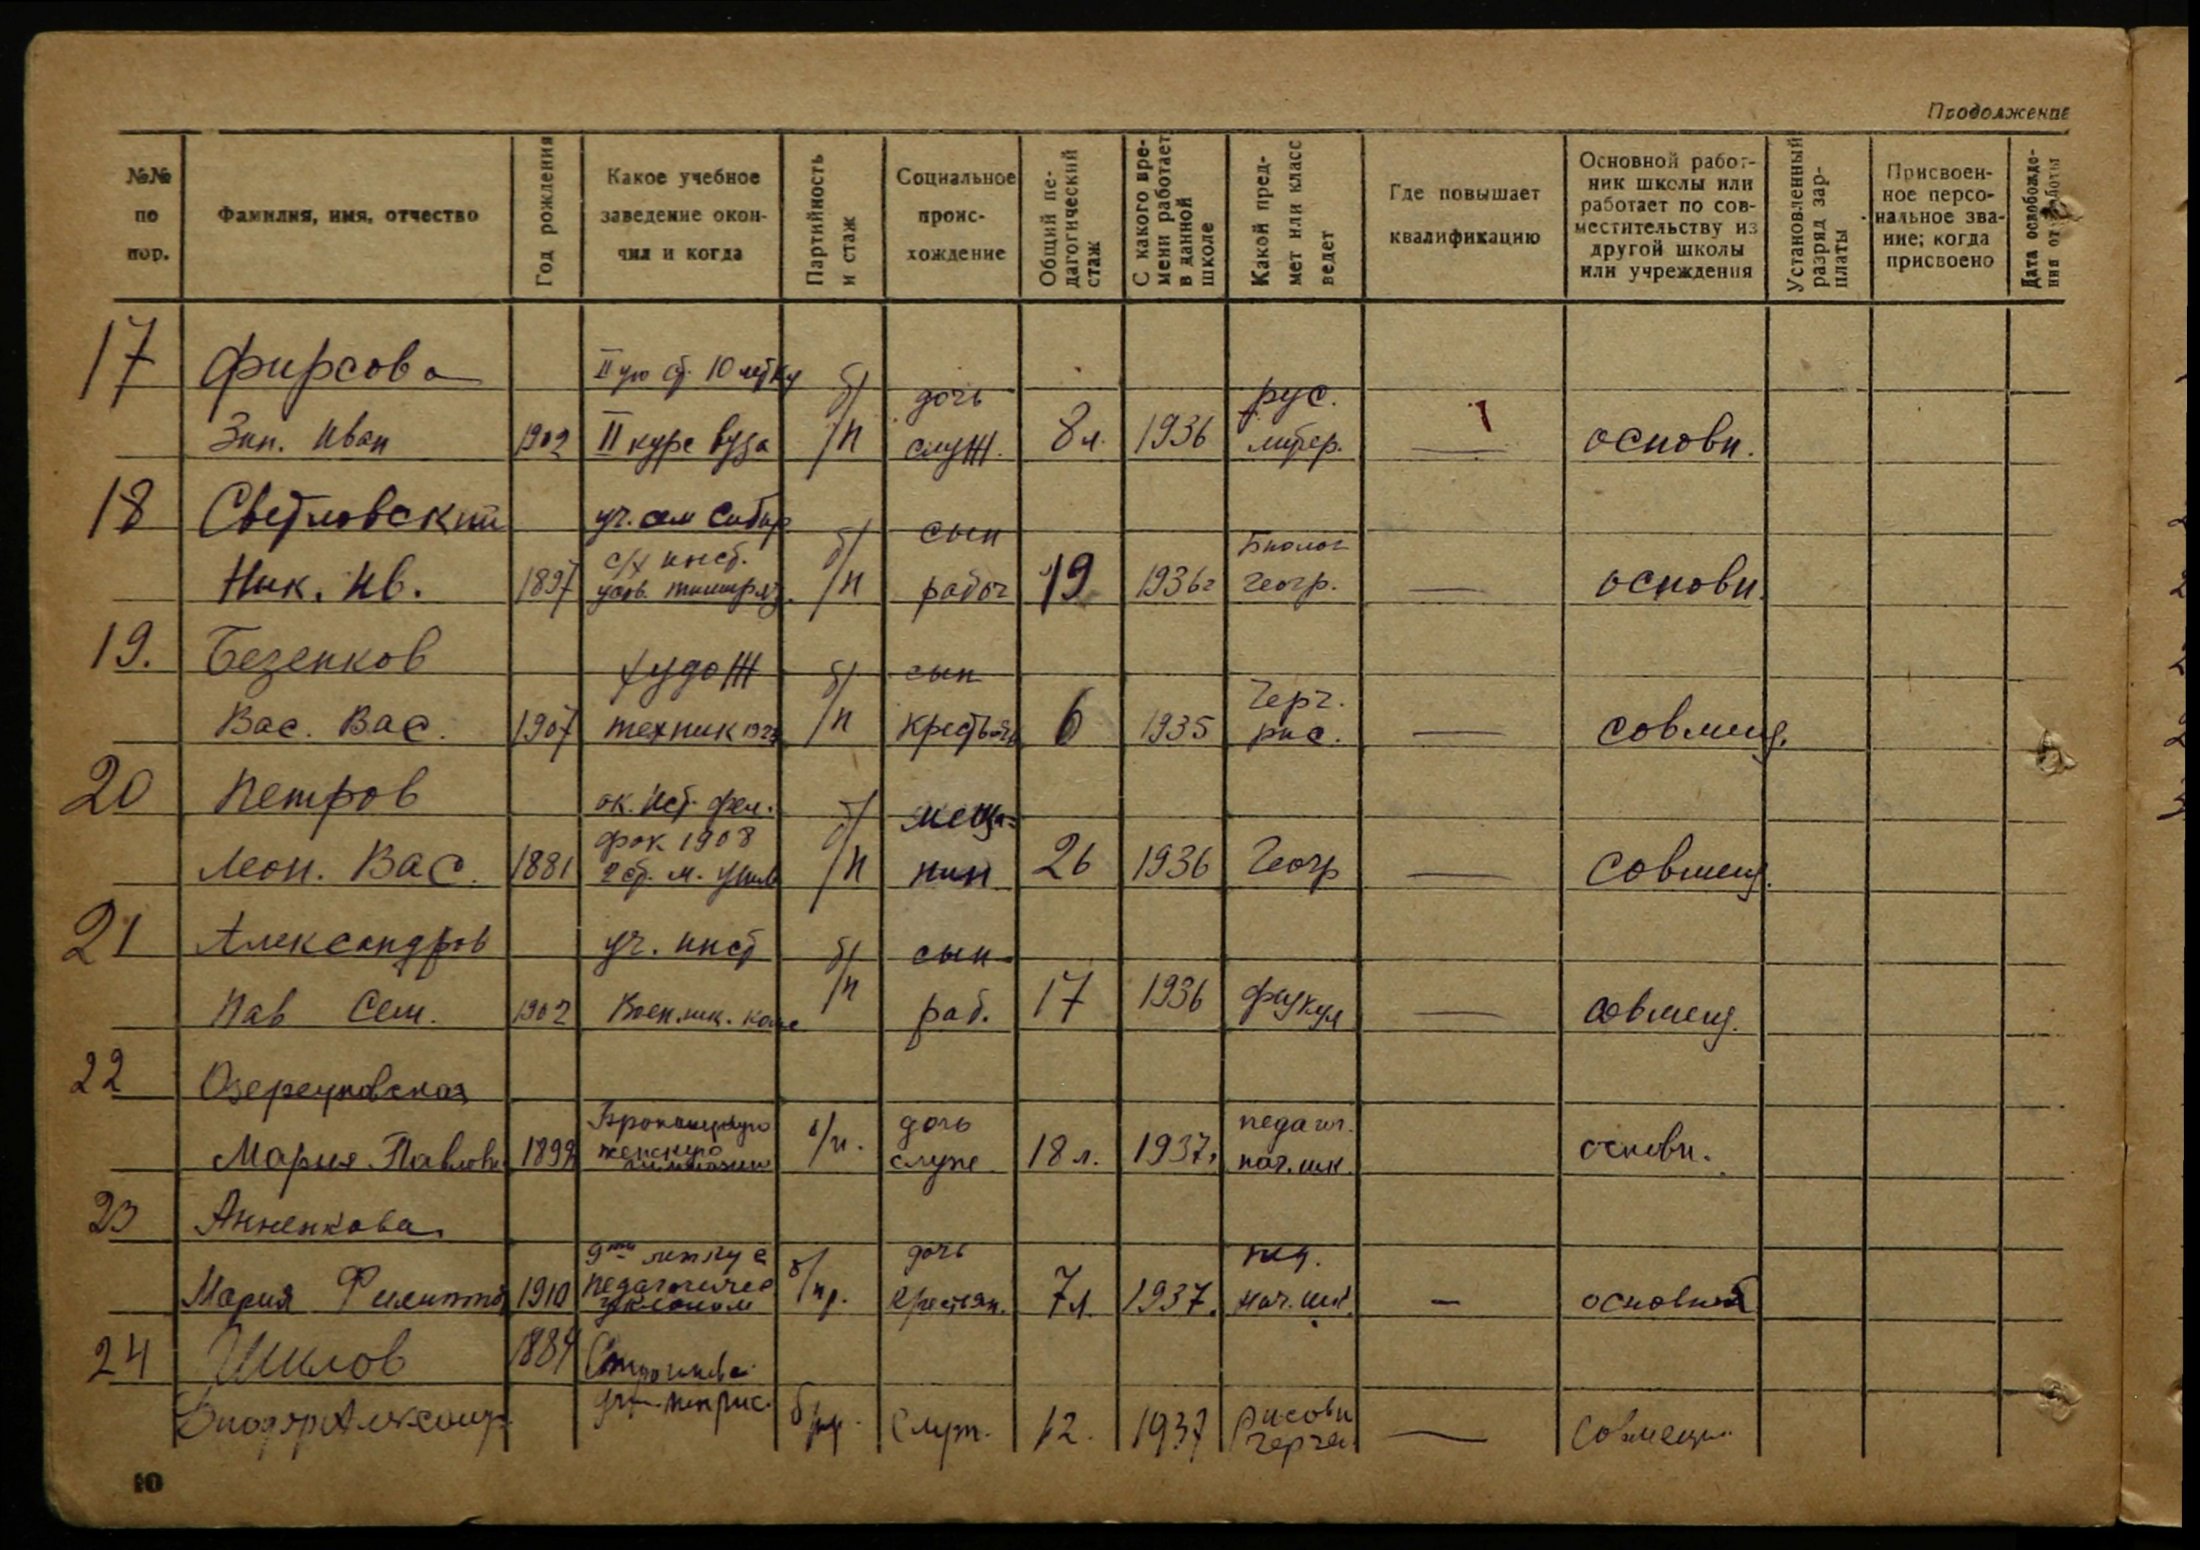 Продолжение
№№ по пор.
Фамилия, имя, отчество
Год рождения
Какое учебное заведение окончил и когда
Партийность и стаж
Социальное происхождение
Общий педагогический стаж
С какого времени работает в данной школе
Какой предмет или класс ведет
Где повышает квалификацию
Основной работник школы или работает по совместительству из другой школы или учреждения
Установленный разряд зарплаты
Присвоенное персональное звание; когда присвоено
Дата освобождения от работы
17 Фирсова
Зин. Иван 1902 II курс вуза б/п дочь служ. 8 л. 1936 рус. литер. — основн.
18 Светловский
Ник. Ив. 1897 с/х инст. б/п сын рабоч 19 1936 г Биолог геогр. — основн.
19. Безенков
Вас. Вас. 1907 худож техник б/п сын крестьян 6 1935 Черч. рис. — совмещ.
20 Петров
Леон. Вас. 1881 ок. Ист. фил. фак 1908 б/п меща-нин 26 1936 Геогр — совмещ.
21 Александров
Пав Сем. 1902 уч. инст б/п сын раб. 17 1936 физкул — совмещ.
22 Озерецковская
Мария Павловн 1899 женскую гимназию б/п. дочь служ. 18 л. 1937. педагог. нач. шк основн.
23 Анненкова
Мария Филиппов 1910 летку с педагогичес уклоном б/пр. дочь крестьян. 7 л. 1937. нач. шк. — основной
24 Шилов 1884
Александр б/пр. Служ. 12. 1937 Рисовн черчен — Совмещ.
10